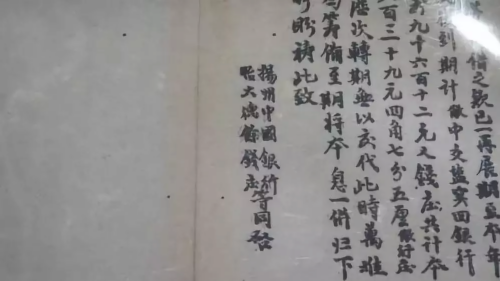 借之款已一再展期至本年
到期計敝中交盐实四銀行
九千六百十二元又錢庄共計本
百三十九元四角七分五厘銀行庄
歷次轉期無以交代此時萬難
籌備至期將本息一併归下
盼禱此致
揚州中國銀行等同啓
怡大德餘錢庄